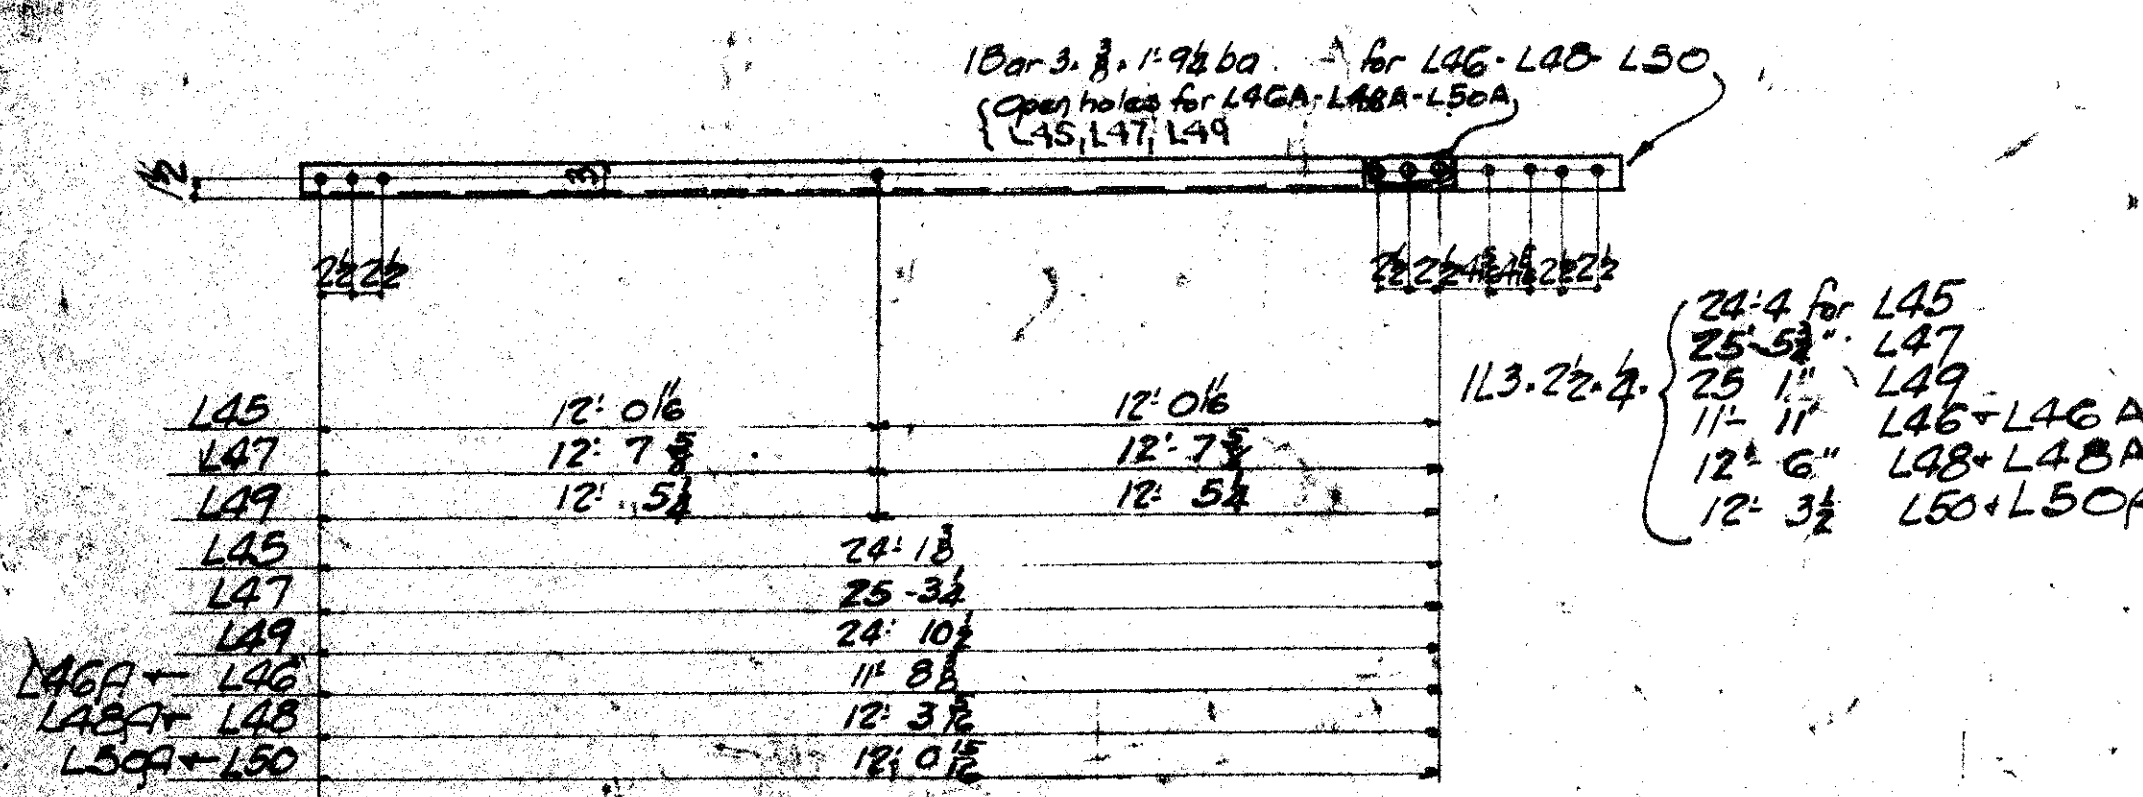 1 Bar 3 · 3/8 · 1'-9 1/4 ba. for L46 · L48 - L50
{ Open holes for L46A - L48A - L50A,
{ L45, L47, L49
3
2 1/2 2 1/2
2 1/2 2 1/2 2 1/2 2 1/2
1L 3 · 2 1/2 · 1/4 ·
24'-4 for L45
L47
25 1" L49
11'- 11" L46 + L46A
12'- 6" L48 + L48A
12'- 3 1/2 L50 + L50A
L45 12'- 0 11/16 12'- 0 11/16
L47 12'- 7 5/8 12'- 7 5/8
L49 12'- 5 1/4 12'- 5 1/4
L45 24'- 1 3/8
L47 25 - 3 1/4
L49 24'- 10 1/2
L46A + L46 11'- 8
L48A + L48 12'- 3 5/16
L50A + L50 12'- 0 15/16